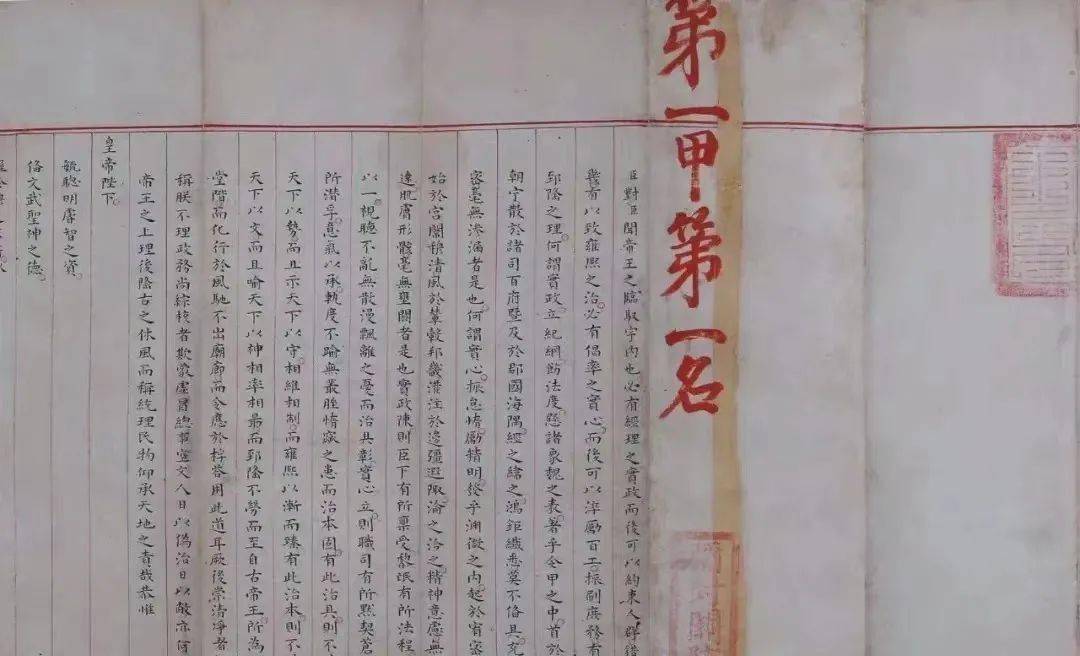 第一甲第一名
臣對臣聞帝王之臨馭宇內也必有經理之實政而後可以約束人群錯
幾有以致雍熙之治必有倡率之實心而後可以淬勵百工振刷庶務有
郅隆之理何謂實政立紀綱飭法度懸諸象魏之表著乎令甲之中首於
朝宁散於諸司百府暨及於郡國海隅經之緯之鴻鉅纖悉莫不備具充
密毫無滲漏者是也何謂實心振怠惰勵精明發乎淵微之內起於宥密
始於宮闈穆清風於輦轂邦畿潢注於邊疆遐陬淪之洽之精神意慮無
達肌膚形骸毫無壅閼者是也實政陳則臣下有所稟受黎氓有所法程
以一視聽不亂無散漫飄離之憂而治具彰實心立則職司有所默契蒼
所潛孚意氣以承軌度不踰無叢脞惰窳之患而治本固有此治具則不
天下以勢而且示天下以守相維相制而雍熙以漸而臻有此治本則不
天下以文而且喻天下以神相率相勗而郅隆不勞而至自古帝王所為
堂階而化行於風馳不出廟廊而令應於桴答用此道耳厥後崇清淨者
稱朕不理政務尚綜核者欺蒙虛冒總事空文人日以偽治日以敝亦何
帝王之上理後隆古之休風而稱統理民物仰承天地之責哉恭惟
皇帝陛下
毓聰明睿智之資
備文武聖神之德